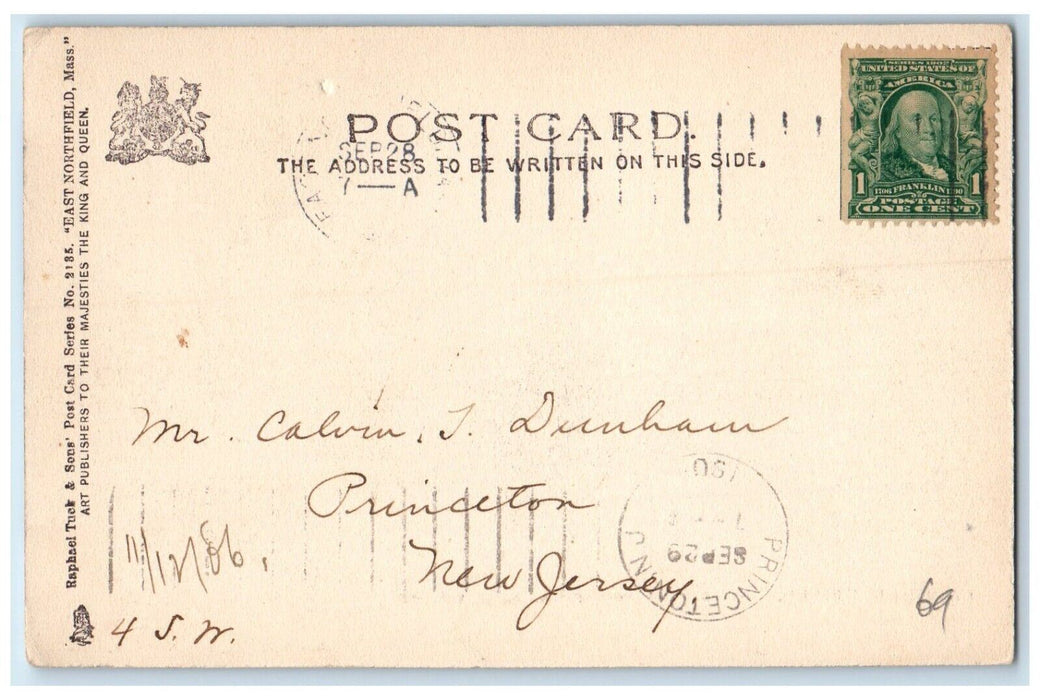 Raphael Tuck & Sons' Post Card Series No. 2135. "EAST NORTHFIELD, Mass."
ART PUBLISHERS TO THEIR MAJESTIES THE KING AND QUEEN.
POST CARD.
THE ADDRESS TO BE WRITTEN ON THIS SIDE.
SEP 28
7 — A
SERIES 1902
UNITED STATES OF
AMERICA
1706 FRANKLIN 1790
1 POSTAGE 1
ONE CENT
Mr. Calvin. T. Dunham
Princeton
New Jersey
PRINCETON N.J.
SEP 29
11/12/06.
4 S. W.
69